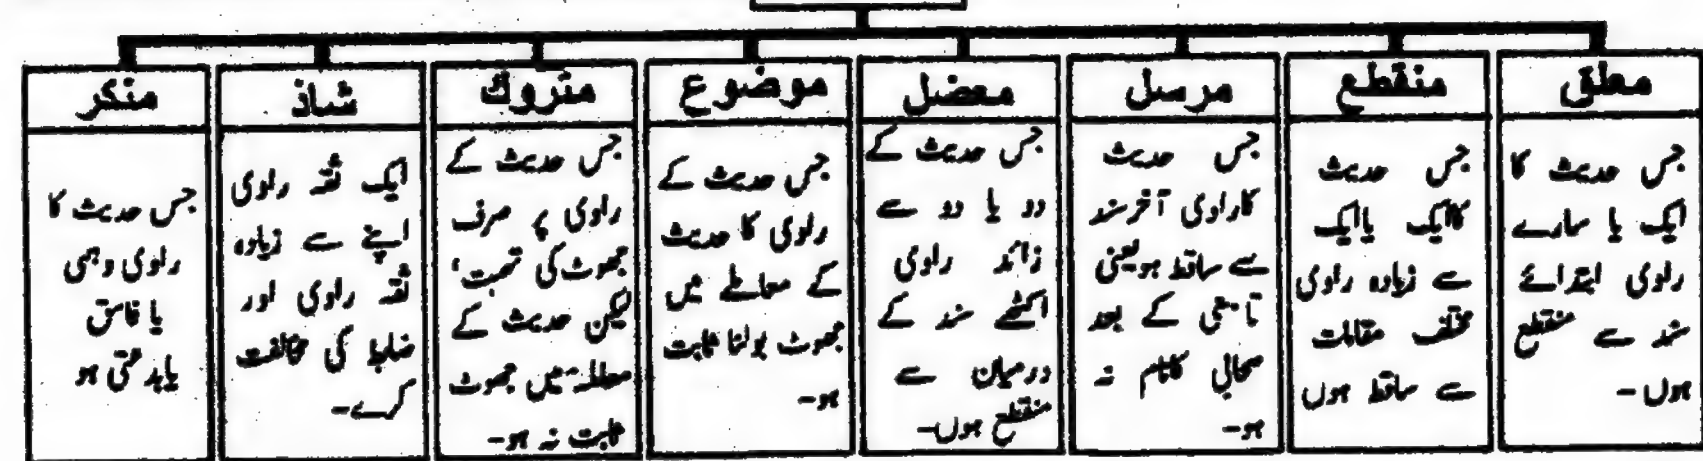 معلق
جس حدیث کا
ایک یا سارے
راوی ابتدائے
سند سے منقطع
ہوں-
منقطع
جس حدیث
کاایک یاایک
سے زیادہ راوی
مختلف مقامات
سے ساقط ہوں
مرسل
جس حدیث
کاراوی آخرسند
سے ساقط ہویعنی
تابعی کے بعد
صحابی کانام نہ
ہو-
معضل
جس حدیث کے
دو یا دو سے
زائد راوی
اکٹھے سند کے
درمیان سے
منقطع ہوں-
موضوع
جس حدیث کے
راوی کا حدیث
کے معاملے میں
جھوٹ بولنا ثابت
ہو-
متروك
جس حدیث کے
راوی پر صرف
جھوٹ کی تہمت'
لیکن حدیث کے
معاملہ میں جھوٹ
ثابت نہ ہو-
شاذ
ایک ثقہ راوی
اپنے سے زیادہ
ثقہ راوی اور
ضابط کی مخالفت
کرے-
منکر
جس حدیث کا
راوی وہمی
یا فاسق
یابدعتی ہو